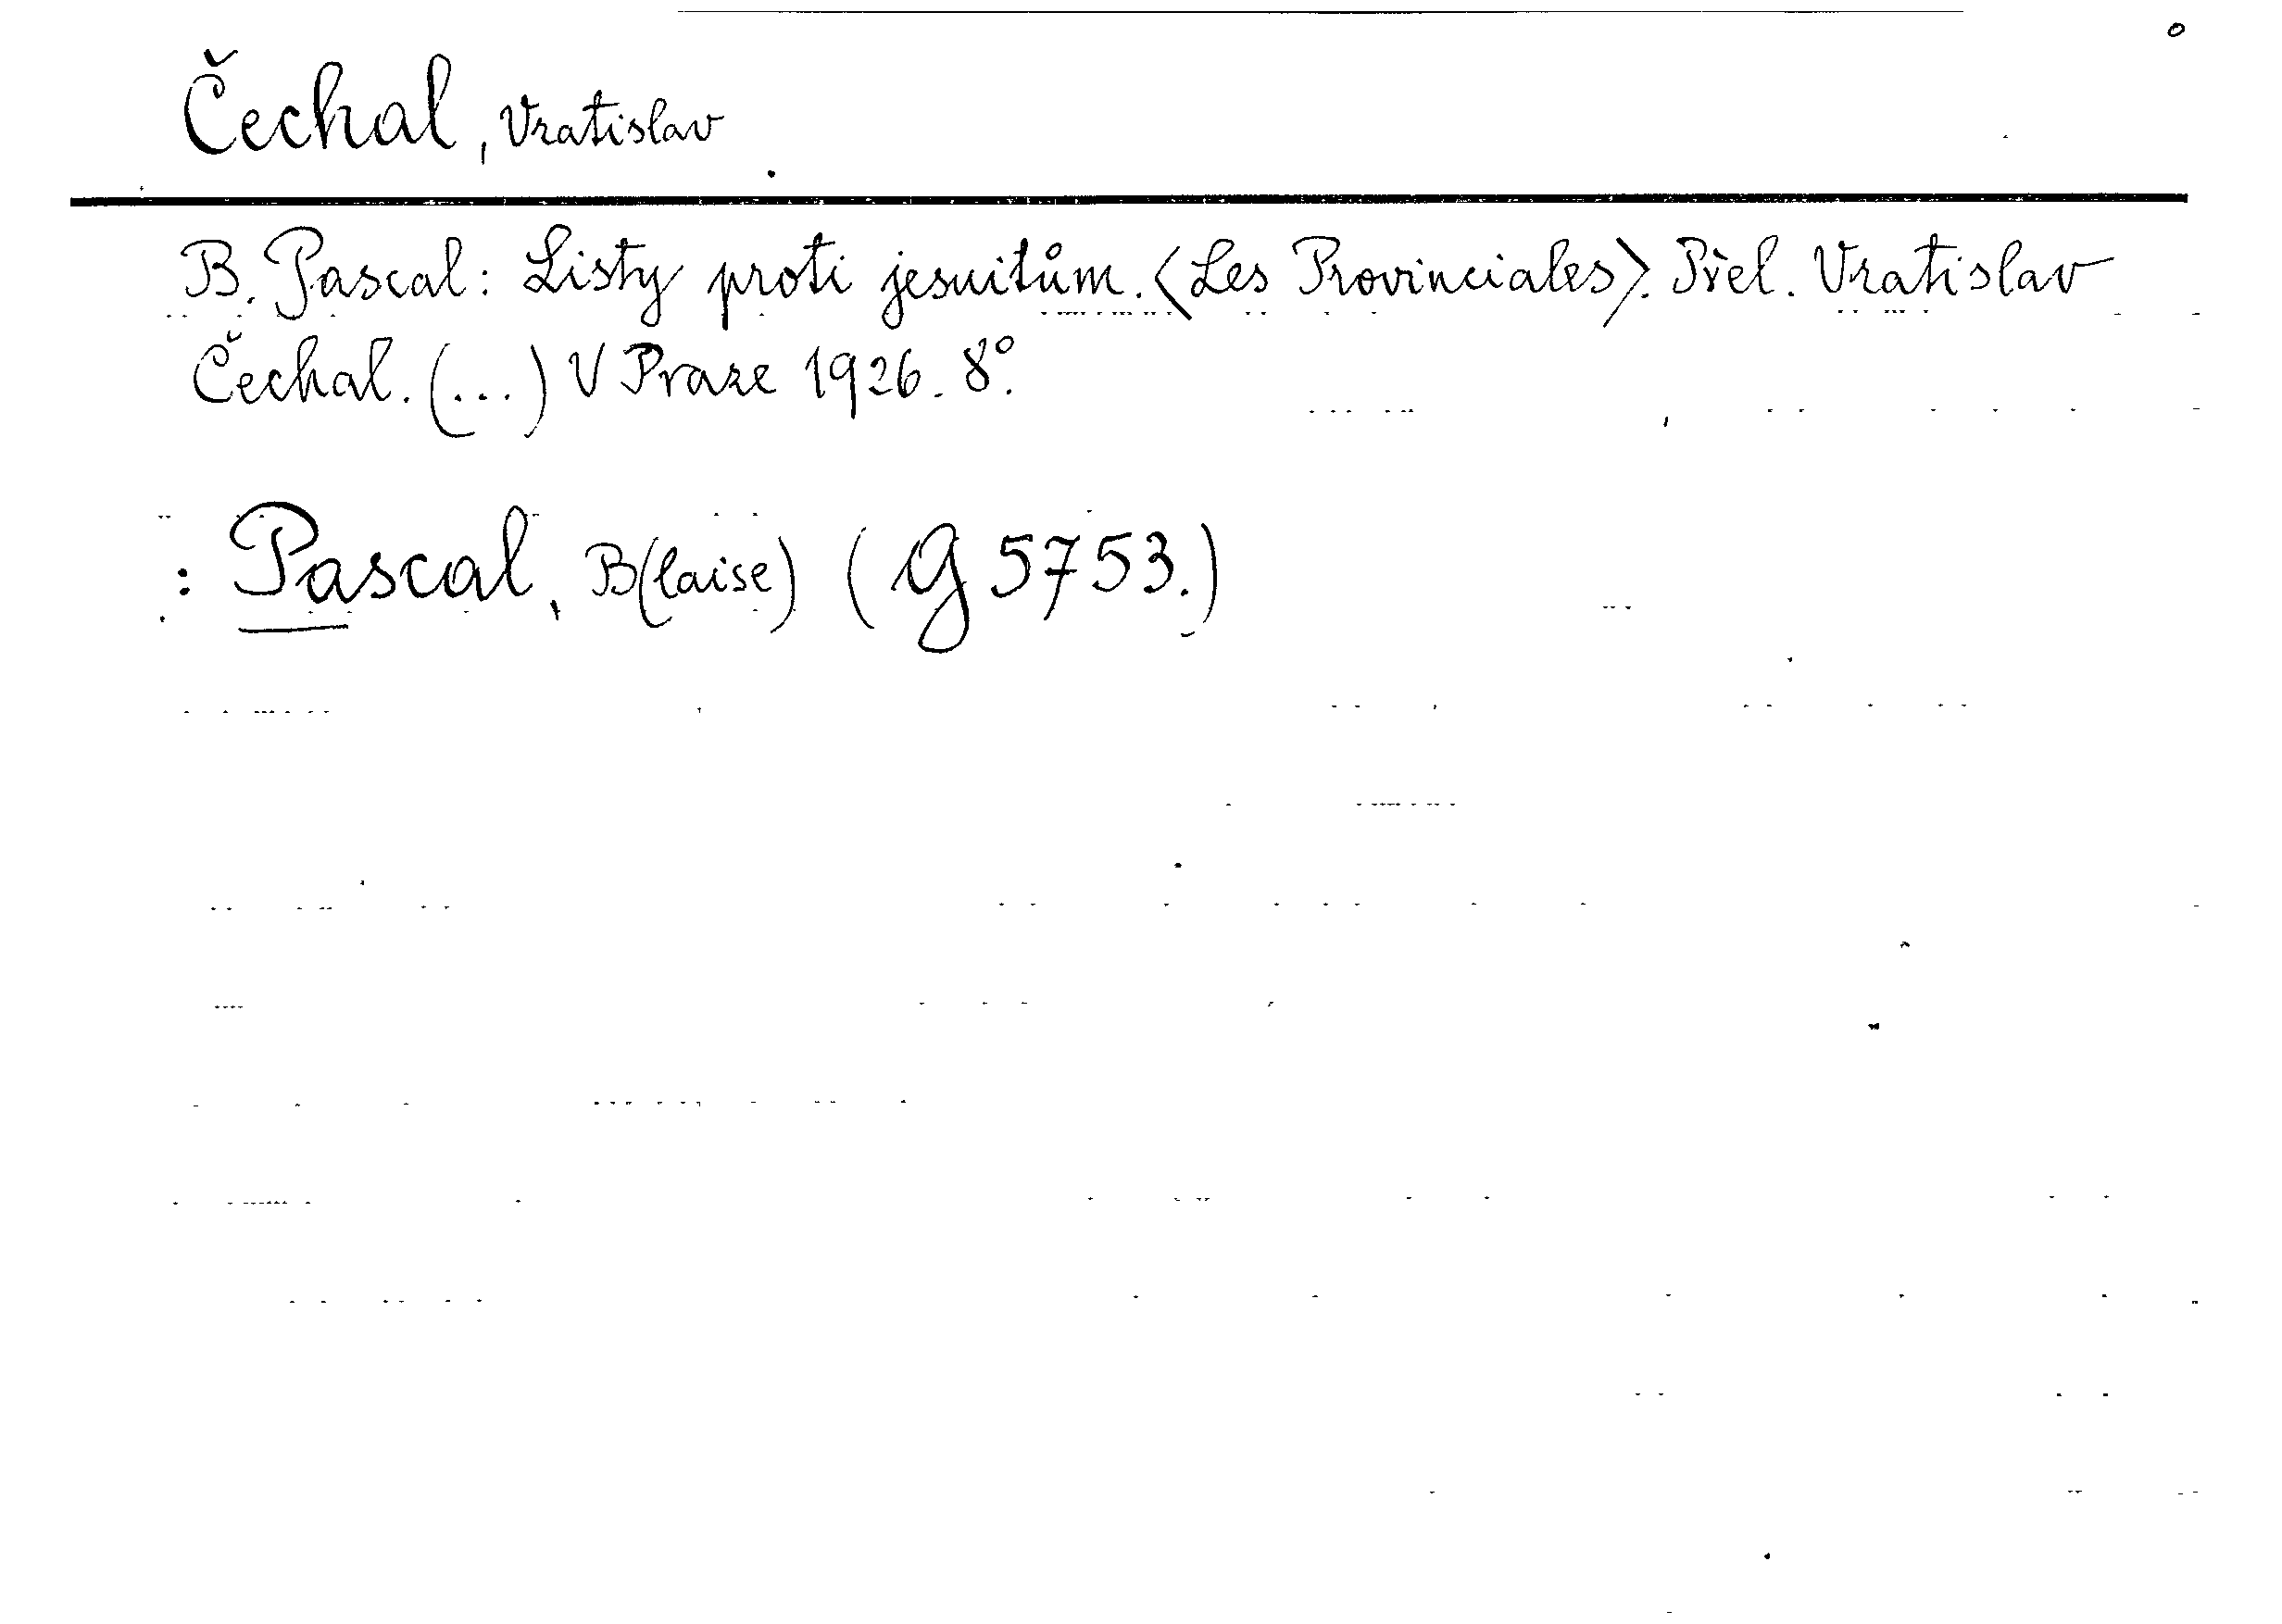 Čechal, Vratislav
B. Pascal: Listy proti jesuitům. <Les Provinciales>. Přel. Vratislav
Čechal. (...) V Praze 1926. 8°.
: Pascal, B(laise) (G 5753.)